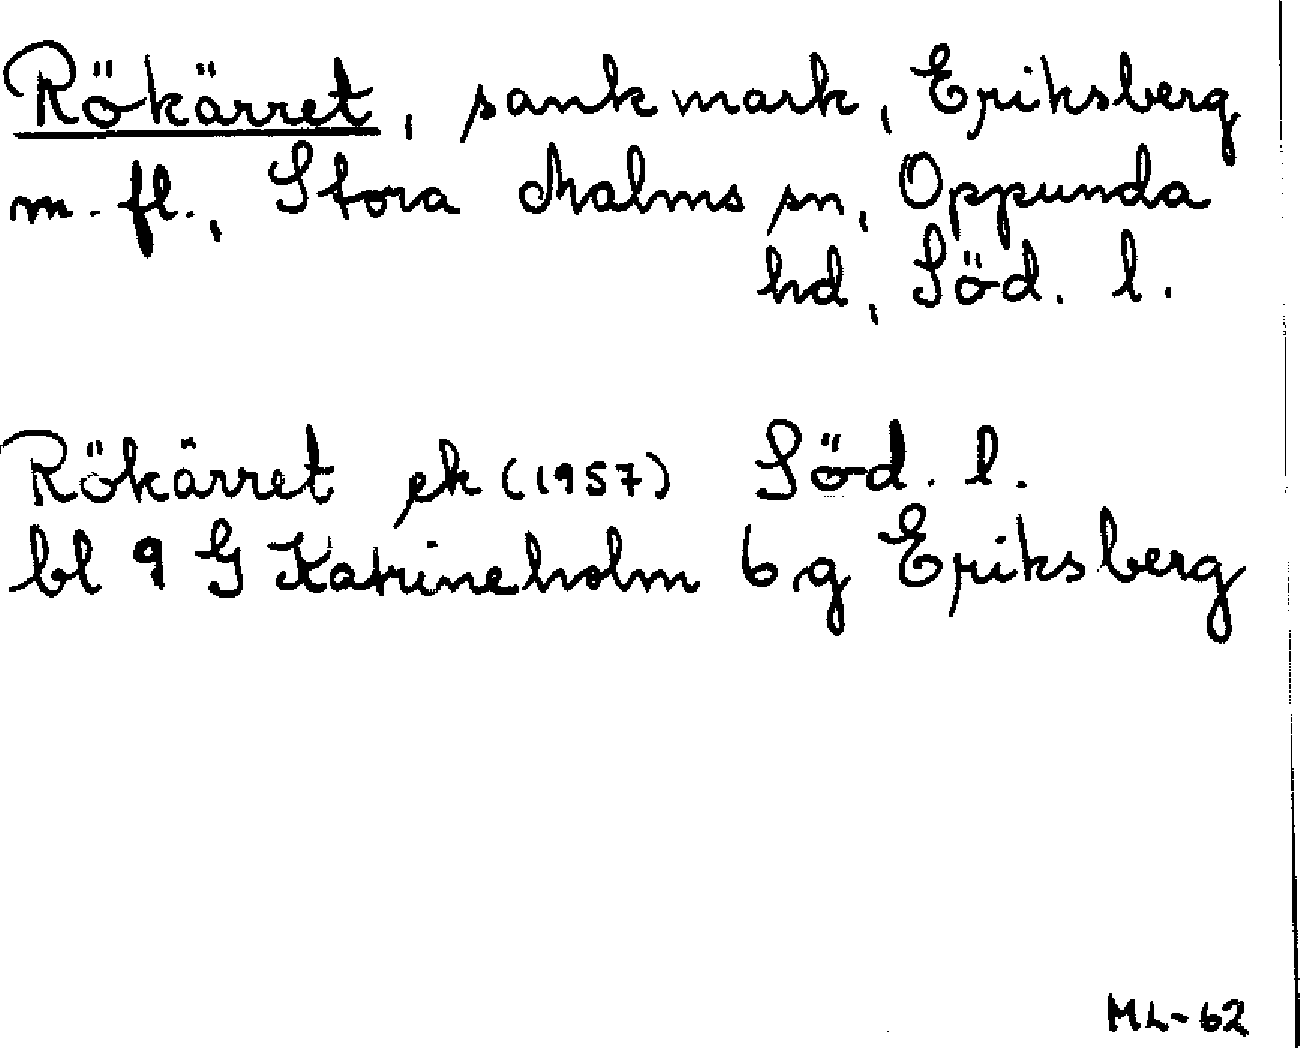 Rökärret, sankmark, Eriksberg
m. fl., Stora Malms sn, Oppunda
hd, Söd. l.
Rökärret ek (1957) Söd. l.
bl 9 G Katrineholm 6 g Eriksberg
ML-62